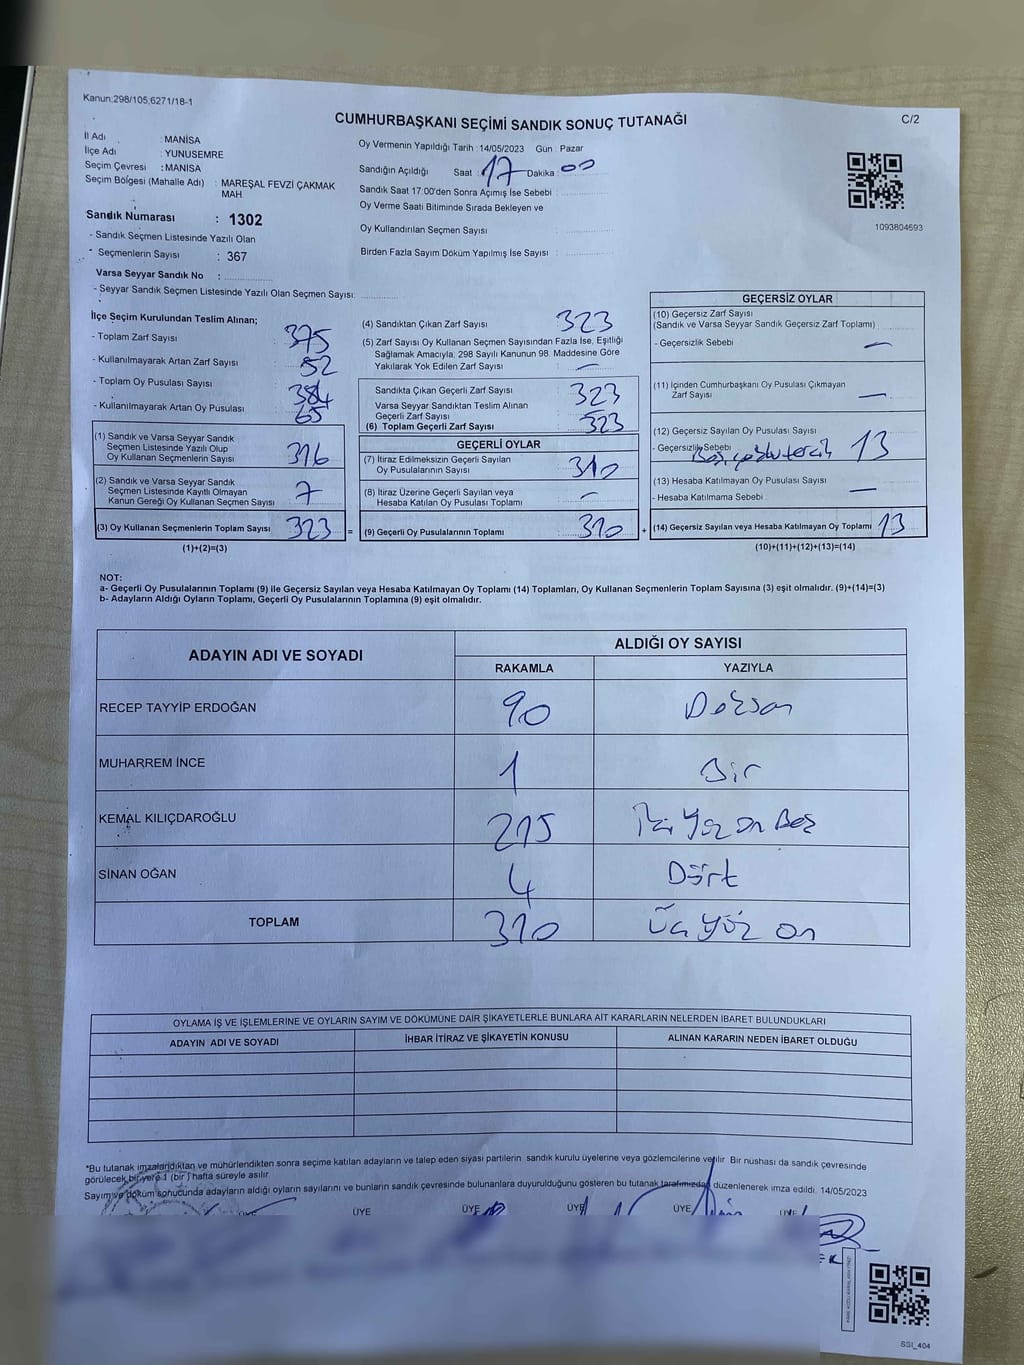 Kanun:298/105,6271/18-1
CUMHURBAŞKANI SEÇİMİ SANDIK SONUÇ TUTANAĞI
C/2
İl Adı : MANİSA
İlçe Adı : YUNUSEMRE
Seçim Çevresi : MANİSA
Seçim Bölgesi (Mahalle Adı) : MAREŞAL FEVZİ ÇAKMAK
MAH
Sandık Numarası : 1302
- Sandık Seçmen Listesinde Yazılı Olan
- Seçmenlerin Sayısı : 367
Varsa Seyyar Sandık No :
- Seyyar Sandık Seçmen Listesinde Yazılı Olan Seçmen Sayısı:
Oy Vermenin Yapıldığı Tarih : 14/05/2023 Gün : Pazar
Sandığın Açıldığı Saat : 17 Dakika : 00
Sandık Saat 17:00'den Sonra Açımış İse Sebebi :
Oy Verme Saati Bitiminde Sırada Bekleyen ve
Oy Kullandırılan Seçmen Sayısı :
Birden Fazla Sayım Döküm Yapılmış İse Sayısı :
1093804693
İlçe Seçim Kurulundan Teslim Alınan;
- Toplam Zarf Sayısı : 375
- Kullanılmayarak Artan Zarf Sayısı : 52
- Toplam Oy Pusulası Sayısı : 384
- Kullanılmayarak Artan Oy Pusulası : 65
(1) Sandık ve Varsa Seyyar Sandık
Seçmen Listesinde Yazılı Olup
Oy Kullanan Seçmenlerin Sayısı 316
(2) Sandık ve Varsa Seyyar Sandık
Seçmen Listesinde Kayıtlı Olmayan
Kanun Gereği Oy Kullanan Seçmen Sayısı 7
(3) Oy Kullanan Seçmenlerin Toplam Sayısı 323 =
(1)+(2)=(3)
(4) Sandıktan Çıkan Zarf Sayısı 323
(5) Zarf Sayısı Oy Kullanan Seçmen Sayısından Fazla İse, Eşitliği
Sağlamak Amacıyla; 298 Sayılı Kanunun 98. Maddesine Göre
Yakılarak Yok Edilen Zarf Sayısı : —
Sandıkta Çıkan Geçerli Zarf Sayısı : 323
Varsa Seyyar Sandıktan Teslim Alınan
Geçerli Zarf Sayısı
(6) Toplam Geçerli Zarf Sayısı : 323
GEÇERLİ OYLAR
(7) İtiraz Edilmeksizin Geçerli Sayılan
Oy Pusulalarının Sayısı : 310
(8) İtiraz Üzerine Geçerli Sayılan veya
Hesaba Katılan Oy Pusulası Toplamı : —
(9) Geçerli Oy Pusulalarının Toplamı : 310 +
GEÇERSİZ OYLAR
(10) Geçersiz Zarf Sayısı
(Sandık ve Varsa Seyyar Sandık Geçersiz Zarf Toplamı)
- Geçersizlik Sebebi : —
(11) İçinden Cumhurbaşkanı Oy Pusulası Çıkmayan
Zarf Sayısı : —
(12) Geçersiz Sayılan Oy Pusulası Sayısı : 13
- Geçersizlik Sebebi Boş, çoklu tercih
(13) Hesaba Katılmayan Oy Pusulası Sayısı : —
- Hesaba Katılmama Sebebi :
(14) Geçersiz Sayılan veya Hesaba Katılmayan Oy Toplamı 13
(10)+(11)+(12)+(13)=(14)
NOT:
a- Geçerli Oy Pusulalarının Toplamı (9) ile Geçersiz Sayılan veya Hesaba Katılmayan Oy Toplamı (14) Toplamları, Oy Kullanan Seçmenlerin Toplam Sayısına (3) eşit olmalıdır. (9)+(14)=(3)
b- Adayların Aldığı Oyların Toplamı, Geçerli Oy Pusulalarının Toplamına (9) eşit olmalıdır.
ADAYIN ADI VE SOYADI
ALDIĞI OY SAYISI
RAKAMLA YAZIYLA
RECEP TAYYİP ERDOĞAN 90 Doksan
MUHARREM İNCE 1 Bir
KEMAL KILIÇDAROĞLU 215 İki Yüz On Beş
SİNAN OĞAN 4 Dört
TOPLAM 310 Üç Yüz on
OYLAMA İŞ VE İŞLEMLERİNE VE OYLARIN SAYIM VE DÖKÜMÜNE DAİR ŞİKAYETLERLE BUNLARA AİT KARARLARIN NELERDEN İBARET BULUNDUKLARI
ADAYIN ADI VE SOYADI İHBAR İTİRAZ VE ŞİKAYETİN KONUSU ALINAN KARARIN NEDEN İBARET OLDUĞU
*Bu tutanak imzalandıktan ve mühürlendikten sonra seçime katılan adayların ve talep eden siyasi partilerin sandık kurulu üyelerine veya gözlemcilerine verilir. Bir nüshası da sandık çevresinde
görülecek bir yere 1 (bir) hafta süreyle asılır.
Sayım ve döküm sonucunda adayların aldığı oyların sayılarını ve bunların sandık çevresinde bulunanlara duyurulduğunu gösteren bu tutanak tarafımızdan düzenlenerek imza edildi. 14/05/2023
ÜYE ÜYE ÜYE ÜYE ÜYE ÜYE
SSI_404